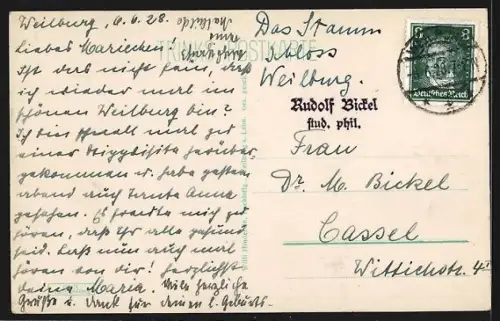 Weilburg, 6.6.28.
liebes Mariechen!
Ist das nicht fein, daß
ich wieder mal im
schönen Weilburg bin?
Ich bin schnell mal zu
einer herüber
gekommen u. habe gestern
abend auch Tante Anna
gesehen. Es freute mich zu
hören, daß Ihr alle gesund
seid. Laß nun auch mal
hören von dir! Herzlichst
deine Maria. Viele herzliche
Grüße u. Dank für deinen l. Geburts-
POSTKARTE
Das Stamm
Schloss
Weilburg.
Rudolf Bickel
stud. phil.
Frau
Dr. M. Bickel
Cassel
Wittichstr. 4
8 8
Deutsches Reich